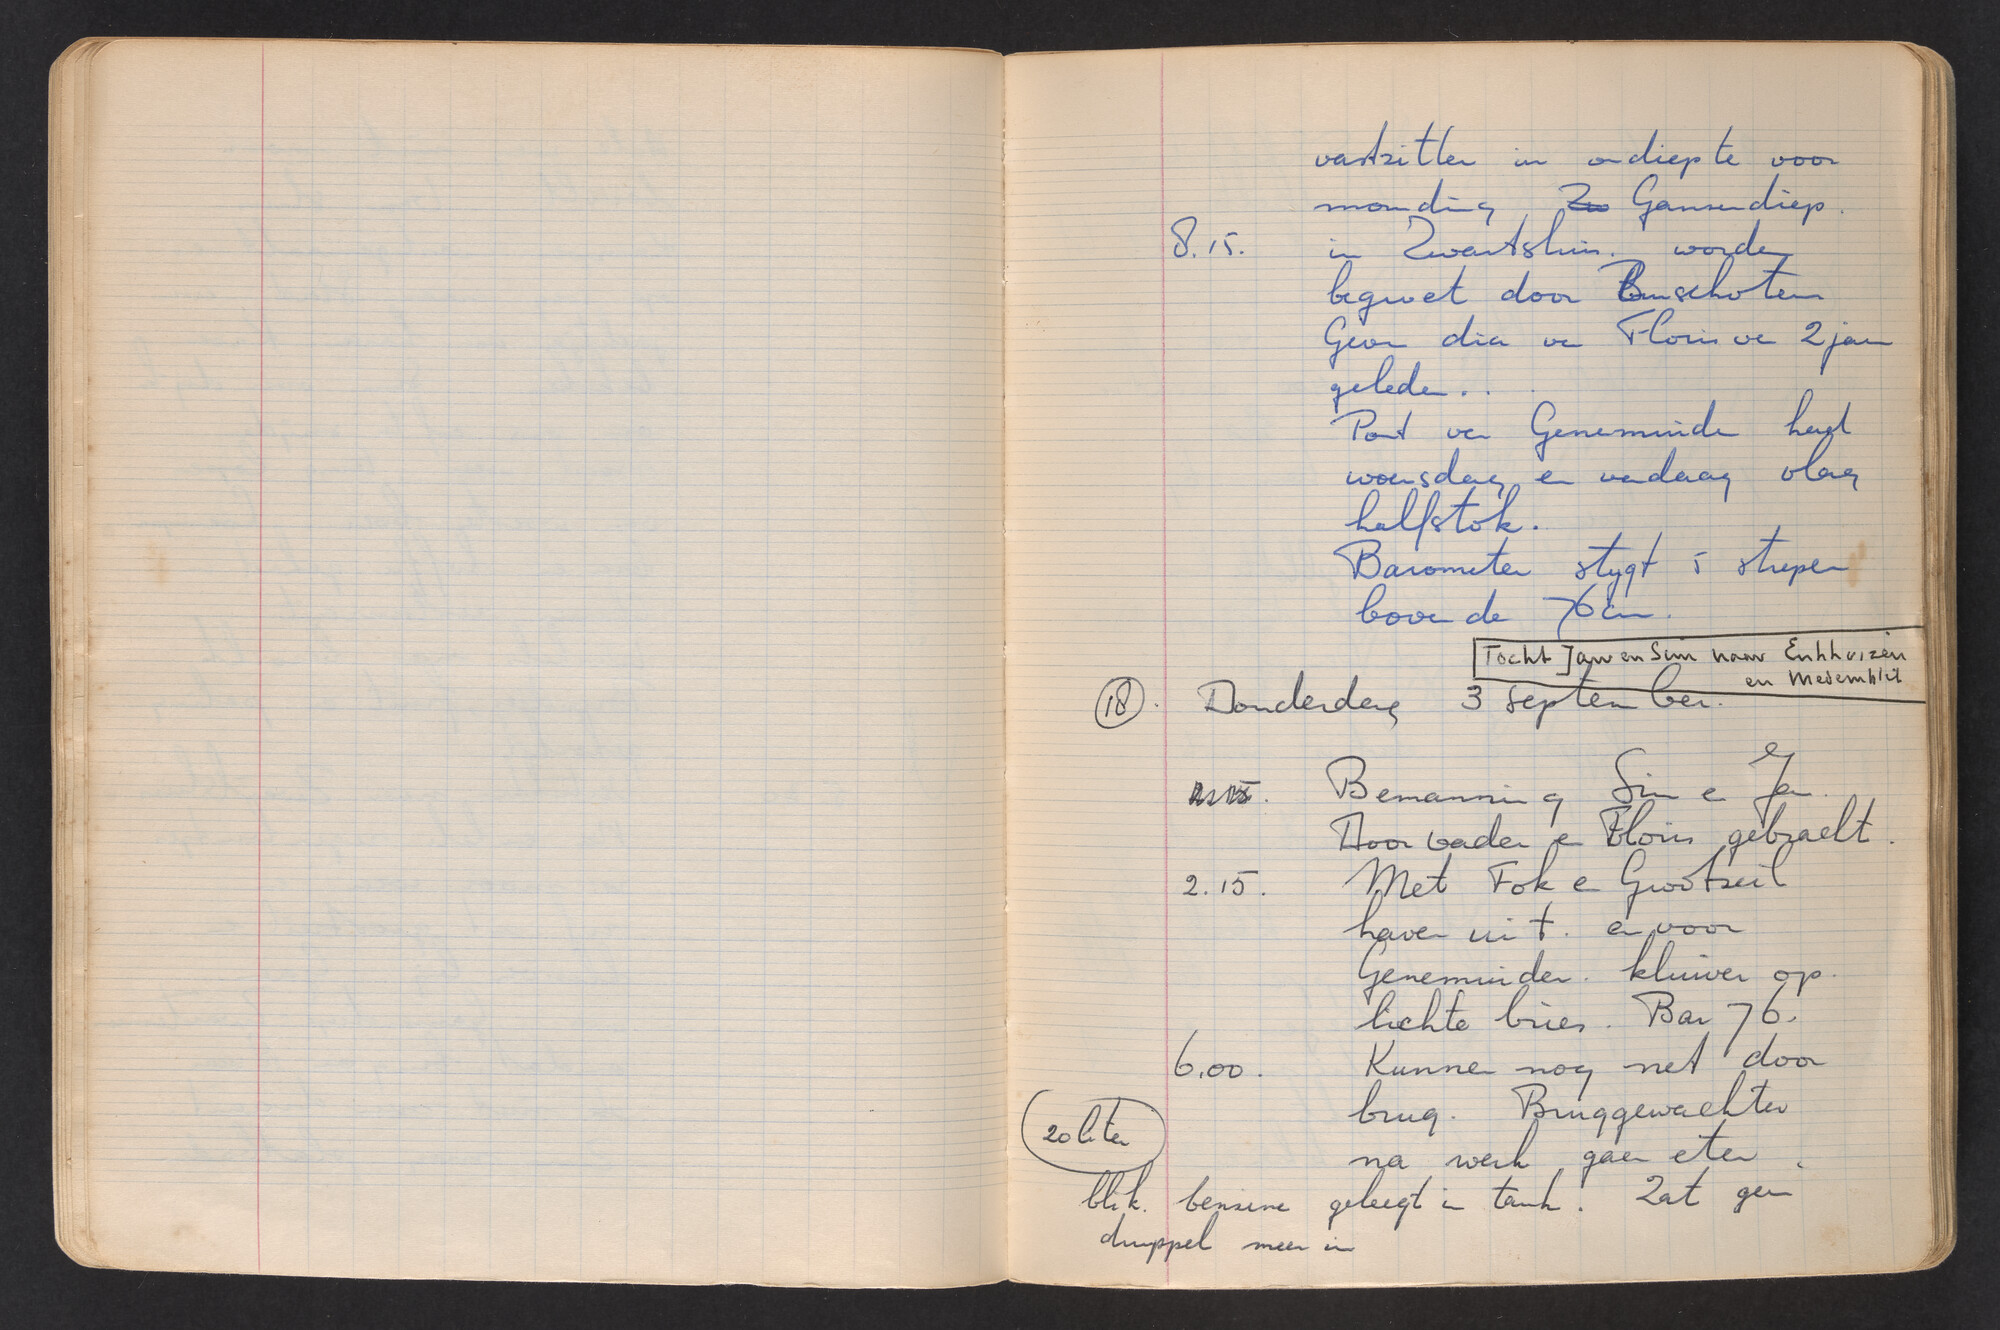 vastzitten in ondiepte voor
monding Zw Ganzendiep.
8.15. in Zwartsluis. worden
begroet door Bunschoten
Geven dia van Floris van 2 jaar
geleden..
Pont van Genemuiden had
woensdag en vandaag vlag
halfstok.
Barometer stygt 5 strepen
boven de 76 cm.
Tocht Jan en Sim naar Enkhuizen
en Medemblik
18. Donderdag 3 september.
Bemanning Sim en Jan.
Door vader en Floris gebracht.
2.15. Met Fok en Grootzeil
haven uit. en voor
Genemuiden. kluiver op.
lichte bries. Bar 76.
6.00. Kunnen nog net door
brug. Bruggewachter
na werk gaan eten.
20 liter
blik. benzine geleegt in tank. Zat geen
druppel meer in